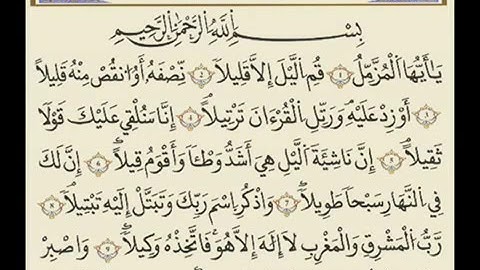 بِسْمِ اللَّهِ الرَّحْمَٰنِ الرَّحِيمِ
يَا أَيُّهَا الْمُزَّمِّلُ ۝١ قُمِ الَّيْلَ إِلَّا قَلِيلًا ۝٢ نِّصْفَهُ أَوِ انقُصْ مِنْهُ قَلِيلًا
۝٣ أَوْ زِدْ عَلَيْهِ وَرَتِّلِ الْقُرْءَانَ تَرْتِيلًا ۝٤ إِنَّا سَنُلْقِي عَلَيْكَ قَوْلًا
ثَقِيلًا ۝٥ إِنَّ نَاشِئَةَ الَّيْلِ هِيَ أَشَدُّ وَطْـًٔا وَأَقْوَمُ قِيلًا ۝٦ إِنَّ لَكَ
فِي النَّهَارِ سَبْحًا طَوِيلًا ۝٧ وَاذْكُرِ اسْمَ رَبِّكَ وَتَبَتَّلْ إِلَيْهِ تَبْتِيلًا ۝٨
رَّبُّ الْمَشْرِقِ وَالْمَغْرِبِ لَا إِلَٰهَ إِلَّا هُوَ فَاتَّخِذْهُ وَكِيلًا ۝٩ وَاصْبِرْ